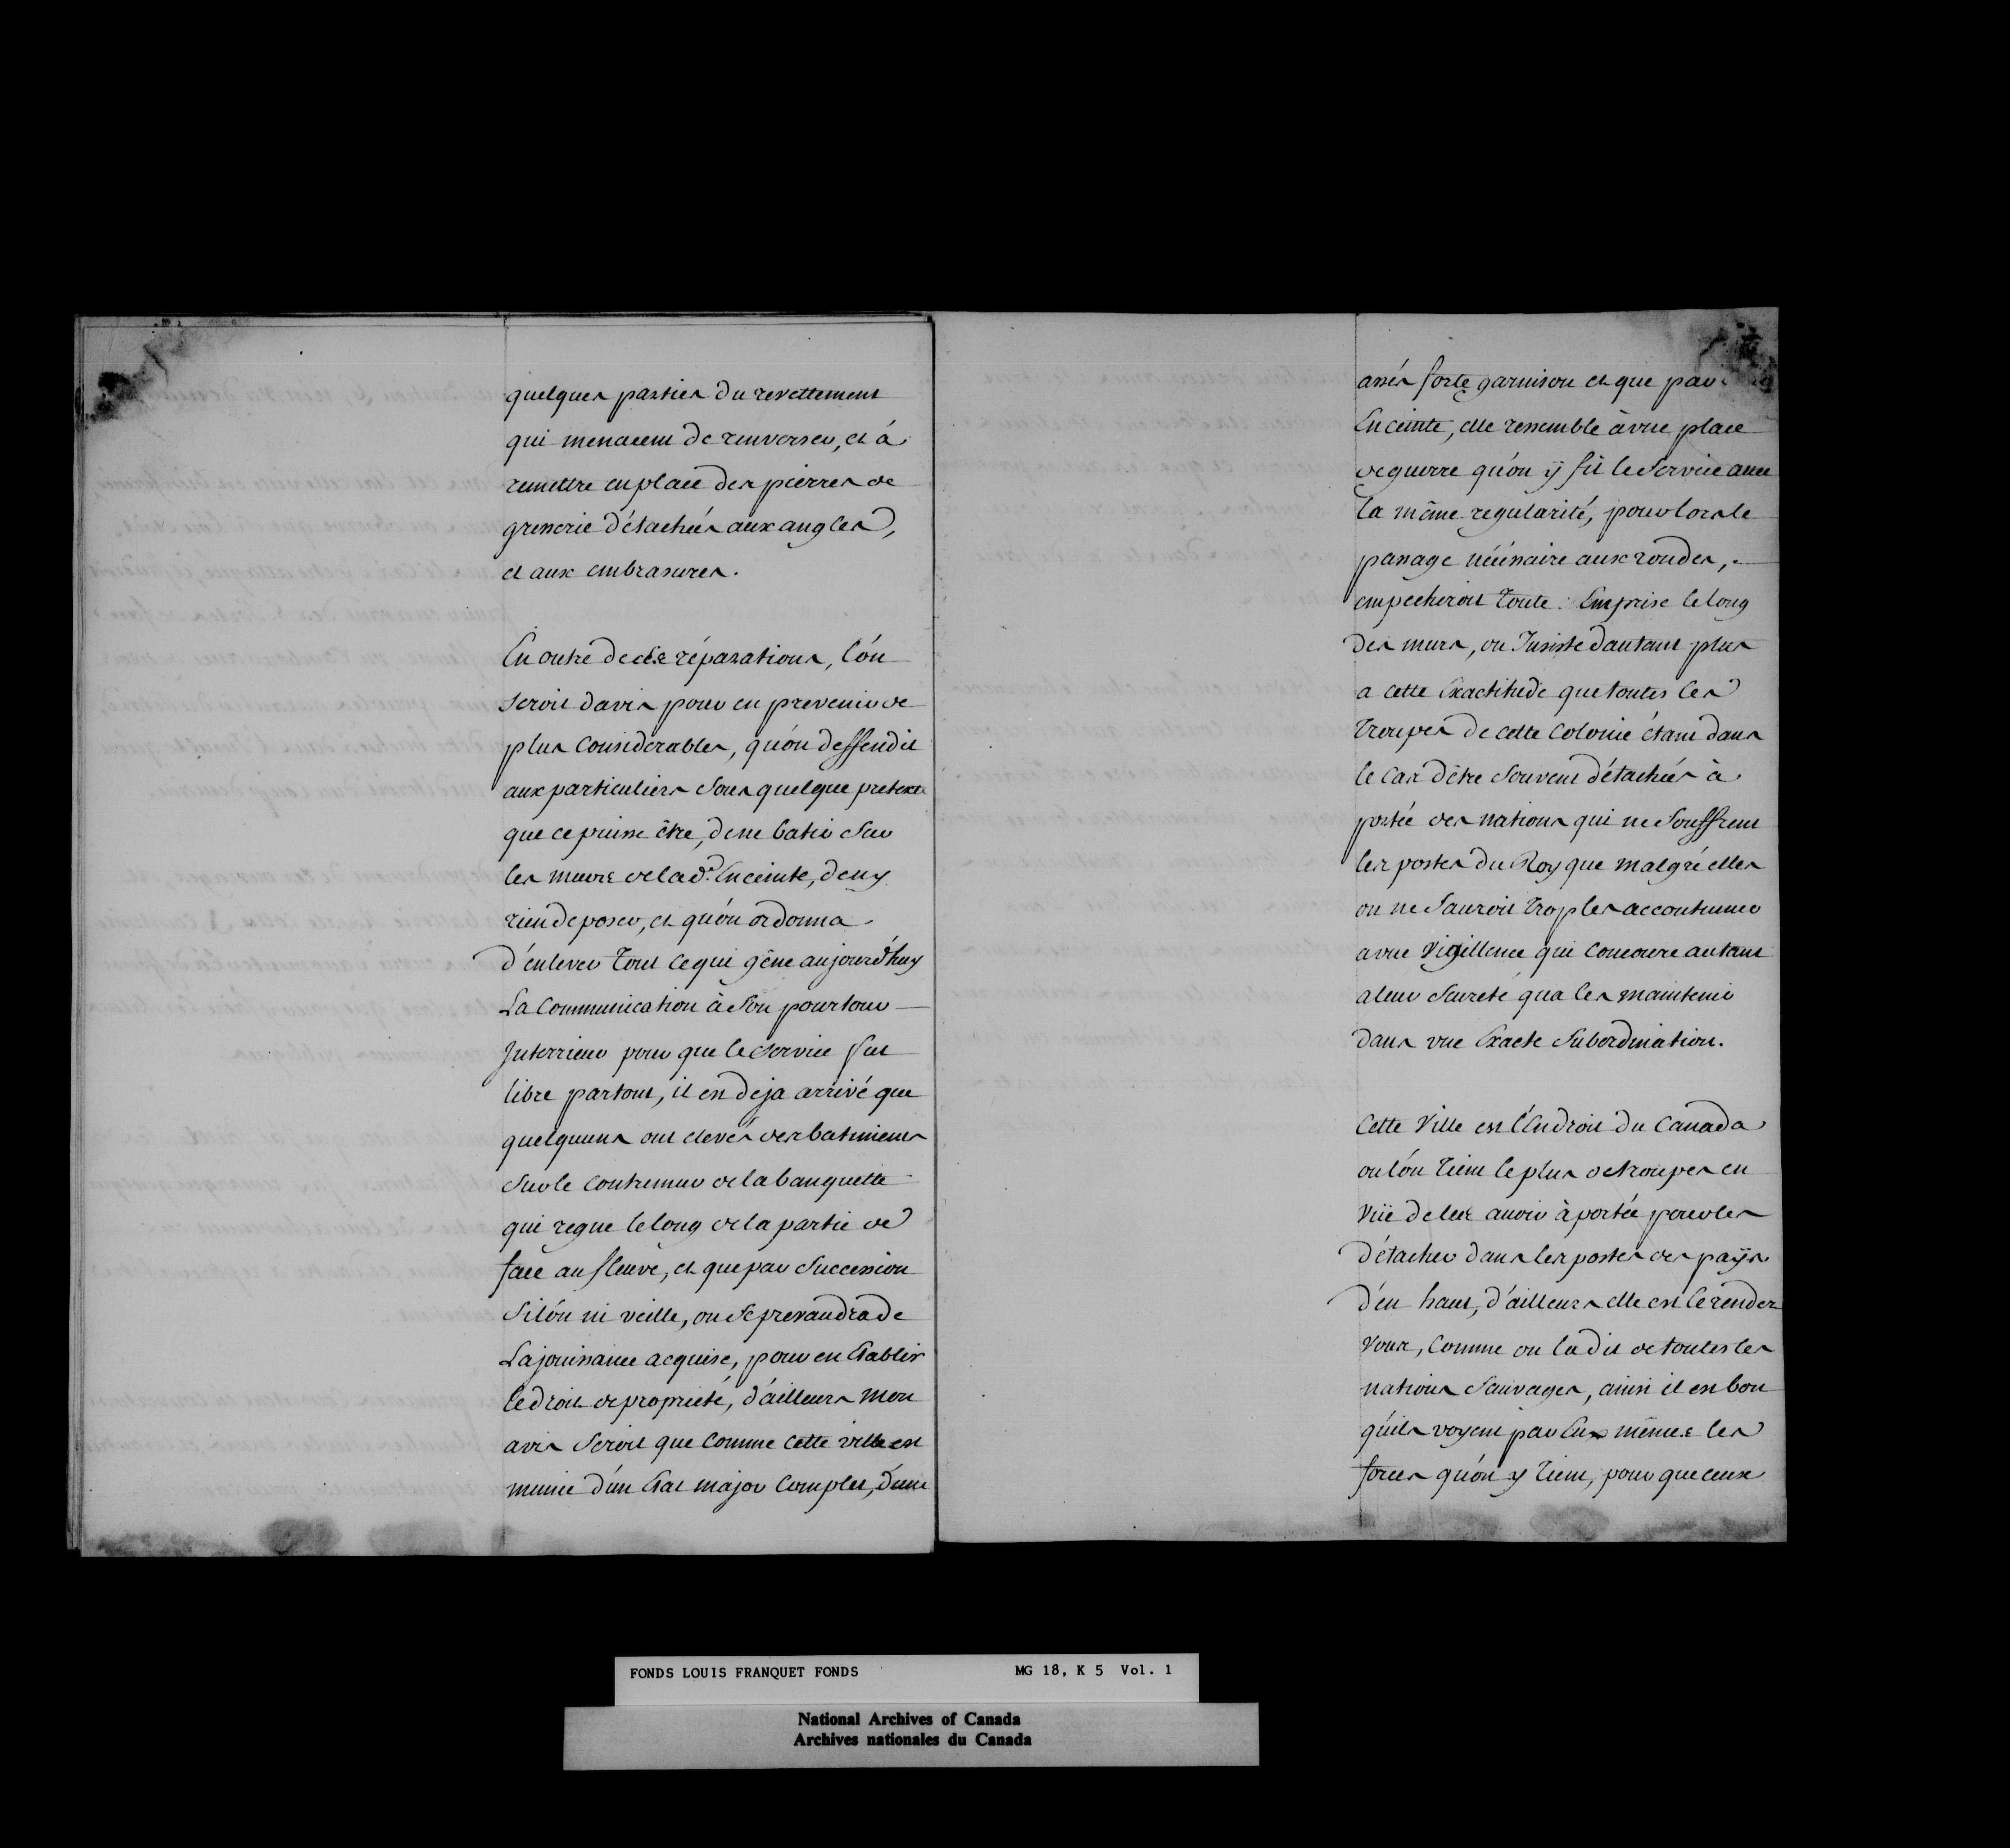 quelques parties du revettement
qui menacent de renverser, et à
remettre en place des pierres de
gresserie détachées aux angles,
et aux embrasures.
En outre de ces réparations, l'on
seroit d'avis pour en prevenir de
plus considerables, qu'on deffendit
aux particuliers sous quelque pretexte
que ce puisse être, de ne batir sur
les murs de lad.e Enceinte, de n'y
rien deposer, et qu'on ordonna
d'enlever tout ce qui gêne aujourd'huy
La Communication à son pourtour
Interrieur pour que le service fut
libre partout, il est deja arrivé que
quelquuns ont elevés des batiments
sur le contremur de la banquette
qui regne le long de la partie de
face au fleuve, et que par succession
si l'on ni veille, on se prevaudra de
La jouissance acquise, pour en Etablir
le droit de propriété, d'ailleurs mon
avis seroit que comme cette ville est
munie d'un Etat major complet, d'une
assés forte garnison et que par
Enceinte, elle ressemble à une place
de guerre qu'on ÿ fit le service avec
la même regularité, pour lors le
passage nécéssaire aux rondes,
empecheroit toute Emprise le long
des murs, on Insiste dautant plus
a cette Exactitude que toutes les
troupes de cette Colonie étant dans
le cas d'être souvent détachées à
portée des nations qui ne souffrent
les postes du Roy que malgré elles
on ne sauroit trop les accoutumer
a une vigillence qui concoure autant
a leur sureté qu'a les maintenir
dans une Exacte subordination.
Cette ville est l'Endroit du Canada
ou l'on tient le plus de troupes en
vüe de les avoir à portée pour les
détacher dans les postes des païs
d'en haut, d'ailleurs elle est le rendez
vous, comme on l'a dit de toutes les
nations sauvages, ainsi il est bon
qu'ils voyent par Eux mêmes les
forces qu'on y tient, pour que ceux
FONDS LOUIS FRANQUET FONDS MG 18, K 5 Vol. 1
National Archives of Canada
Archives nationales du Canada